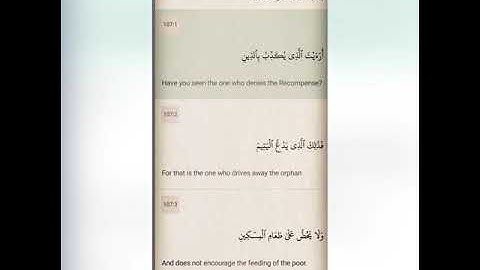 107:1
أَرَءَيْتَ ٱلَّذِى يُكَذِّبُ بِٱلدِّينِ
Have you seen the one who denies the Recompense?
107:2
فَذَٰلِكَ ٱلَّذِى يَدُعُّ ٱلْيَتِيمَ
For that is the one who drives away the orphan
107:3
وَلَا يَحُضُّ عَلَىٰ طَعَامِ ٱلْمِسْكِينِ
And does not encourage the feeding of the poor.